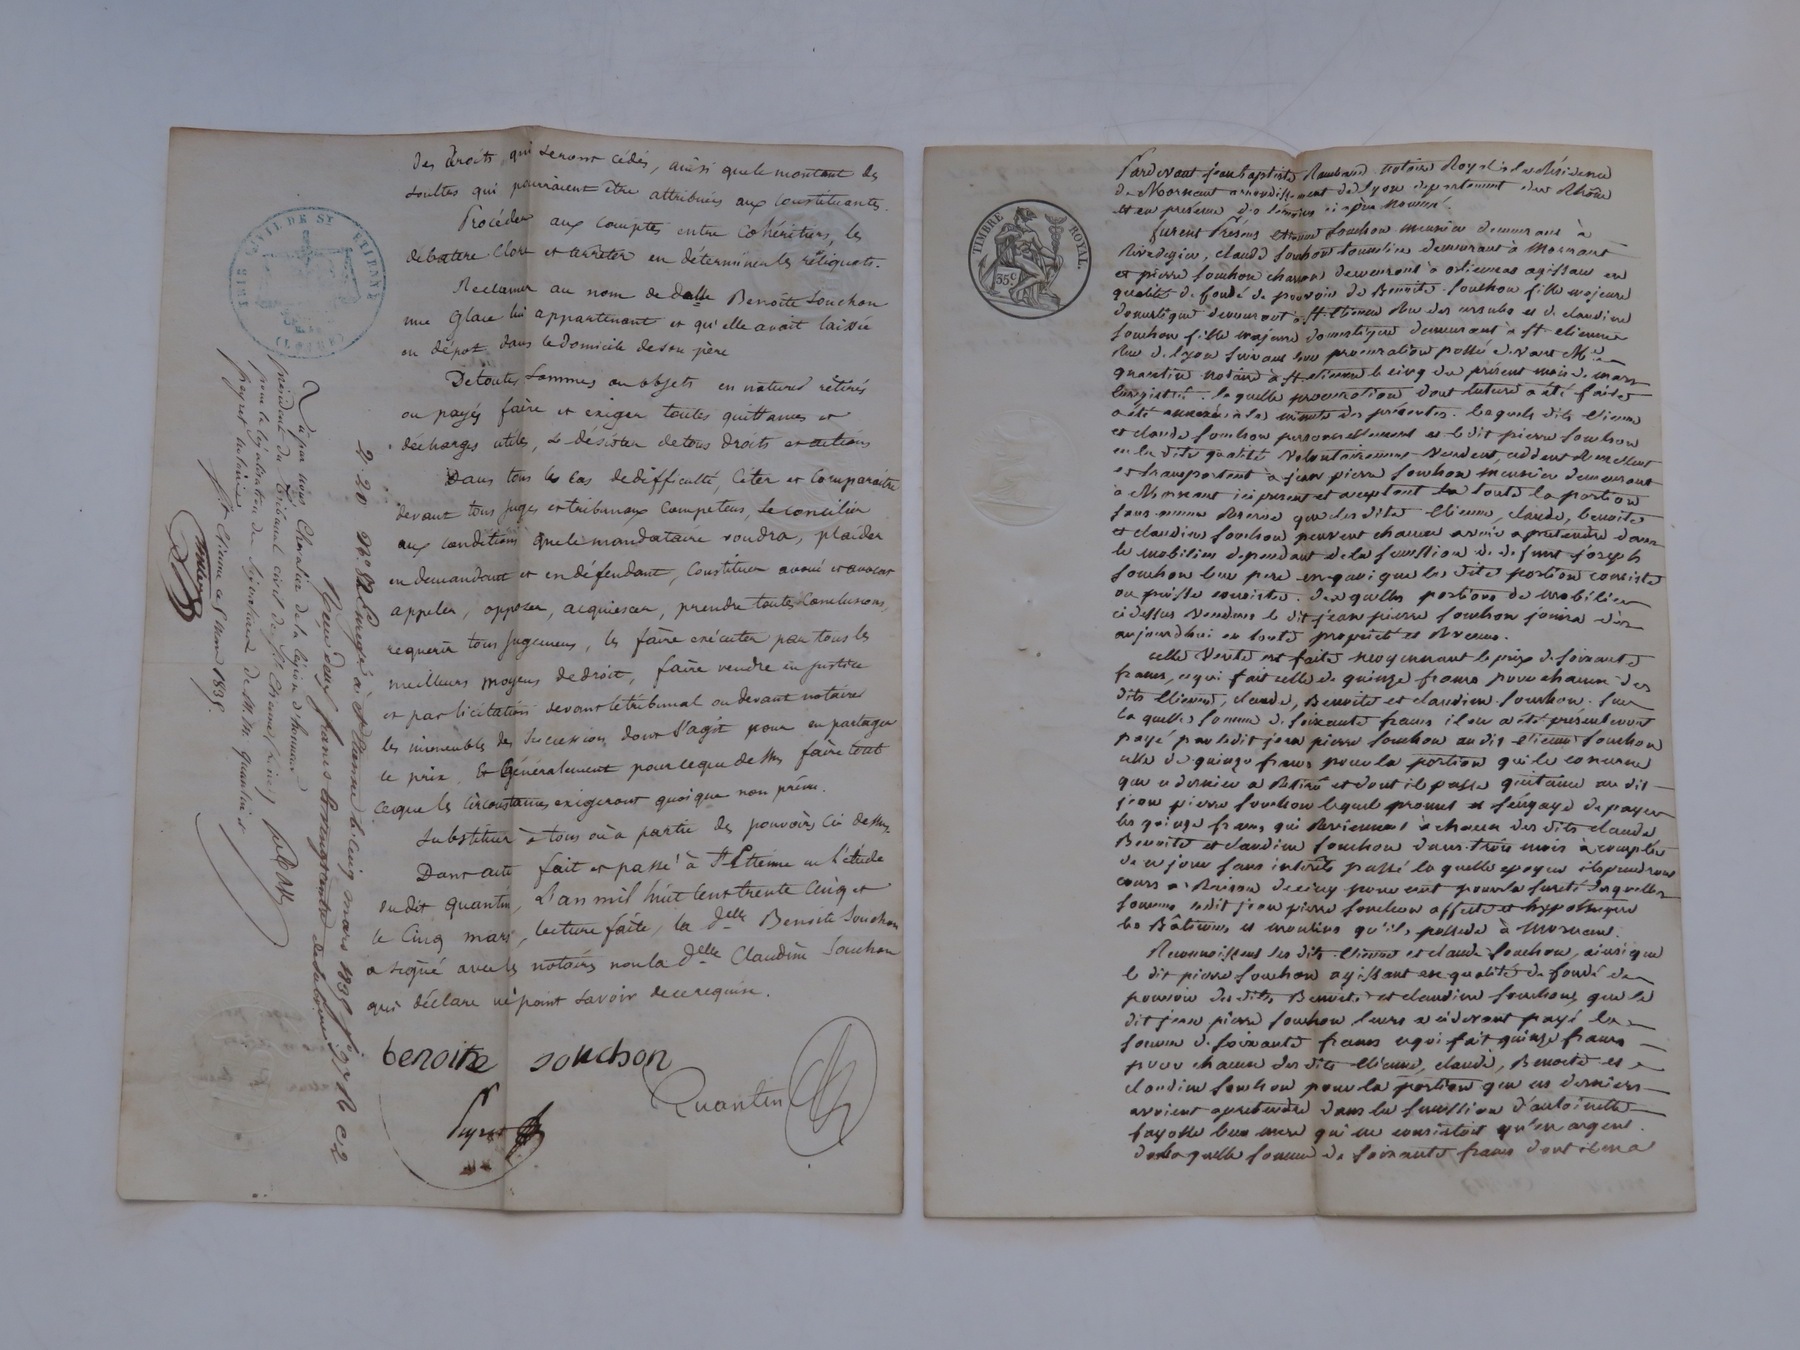 des droits qui seront cédés, ainsi que le montant des
soultes qui pourraient être attribuées aux constituantes.
Procéder aux comptes entre cohéritiers, les
débattre clore et arrêter en déterminer les réliquats.
Reclamer au nom de delle Benoîte Souchon
une glace lui appartenant et qu'elle avait laissée
en dépot dans le domicile de son père
De toutes sommes ou objets en natures retirés
ou payés faire et exiger toutes quittances et
décharges utiles, se désister de tous droits et actions
Dans tous les cas de difficulté, citer et comparaitre
devant tous juges et tribunaux competens, se concilier
aux conditions que le mandataire voudra, plaider
en demandant et en défendant, constituer avoué et avocat
appeler, opposer, acquiescer, prendre toutes conclusions,
requerir tous jugemens, les faire exécuter par tous les
meilleurs moyens de droit, faire vendre en justice
et par licitation devant le tribunal ou devant notaire
les immeubles des succession dont s'agit pour en partager
le prix, Et généralement pour ce que dessus faire tout
ce que les circonstances exigeront quoique non prévu.
Substituer à tous où à partie des pouvoirs ci dessus.
Dont acte fait et passé à St Etienne en l'étude
du dit quantin, L'an mil huit cent trente cinq et
le cinq mars, lecture faite, la delle Benoîte Souchon
a signé avec les notaires non la delle Claudine Souchon
qui déclare ne point savoir de ce requise.
benoite souchon
Quantin
Peyret
2.20 Enregé à St Etienne le cinq mars 1835
Reçu deux francs vingt centes
Vu par nous Chevalier de la légion d'honneur
président du tribunal civil de St Etienne (Loire)
pour la légalisation des signatures de M. M. quantin et
peyret notaires
St Etienne ce 5 mars 1835
CIVIL DE ST ETIENNE
(LOIRE)
TIMBRE ROYAL.
35c
Pardevant jean baptiste Rambaud notaire Royal à la Résidence
de Mornant arrondissement de Lyon departement du Rhône
et en présence des témoins ci après nommé.
furent Presens Etienne Souchon meunier demeurant à
claude Souchon demeurant à Mornant
et pierre Souchon charron demeurant à orlienas agissant en
qualité de fondé de pouvoir de Benoite Souchon fille majeure
domestique demeurant à St Etienne Rue des ursules et de claudine
Souchon fille majeure domestique demeurant à St etienne
Rue de Lyon suivant leur procuration passé devant Me
quantin notaire à St etienne le cinq du présent mois de mars
Enregistré. laquelle procuration dont lecture a été faite
a été annexée à la minute des présentes. Lesquels dits Etienne
et claude Souchon personnellement et le dit pierre Souchon
en la dite qualité volontairement vendent, cedent Remettent
et transportent à jean pierre Souchon meunier demeurant
à Mornant ici présent et acceptant toute la portion
sans aucune Reserve que les dits Etienne, claude, benoite
et claudine Souchon peuvent chacun avoir à prétendre dans
le mobilier dépendant de la succession de defunt joseph
Souchon leur pere en quoi que les dite portion consiste
ou puisse consister. desquelles portions de mobilier
ci dessus vendues le dit jean pierre Souchon jouira dès
aujourdhui en toute propriété et Revenu.
cette vente est faite moyennant le prix de soixante
francs, ce qui fait celle de quinze francs pour chacun des
dits Etienne, claude, Benoite et claudine Souchon. Sur
laquelle somme de soixante francs il en a été présentement
payé par ledit jean pierre Souchon au dit etienne Souchon
celle de quinze francs pour la portion qui le concerne
que ce dernier a Retiré et dont il passe quittance au dit
jean pierre Souchon lequel promet et s'engage de payer
les quinze francs qui Reviennent à chacun des dits claude
Benoite et claudine Souchon dans trois mois à compter
de ce jour sans intérêts passé laquelle époque ils prendront
cours à Raison de cinq pour cent pour la sureté desquelles
sommes ledit jean pierre Souchon affecte et hypothèque
les Bâtimens et moulins qu'il possede à Mornant.
Reconnoissent les dits Etienne et claude Souchon, ainsi que
le dit pierre Souchon agissant en qualité de fondé de
pouvoir des dites Benoite et claudine Souchon, que le
dit jean pierre Souchon leurs a ci devant payé la
somme de soixante francs ce qui fait quinze francs
pour chacun des dits Etienne, claude, Benoite et
claudine Souchon pour la portion que ces derniers
avoient à prétendre dans la succession d'antoinette
fayolle leur mere qui ne consistoit qu'en argent.
de laquelle somme de soixante francs dont il en a